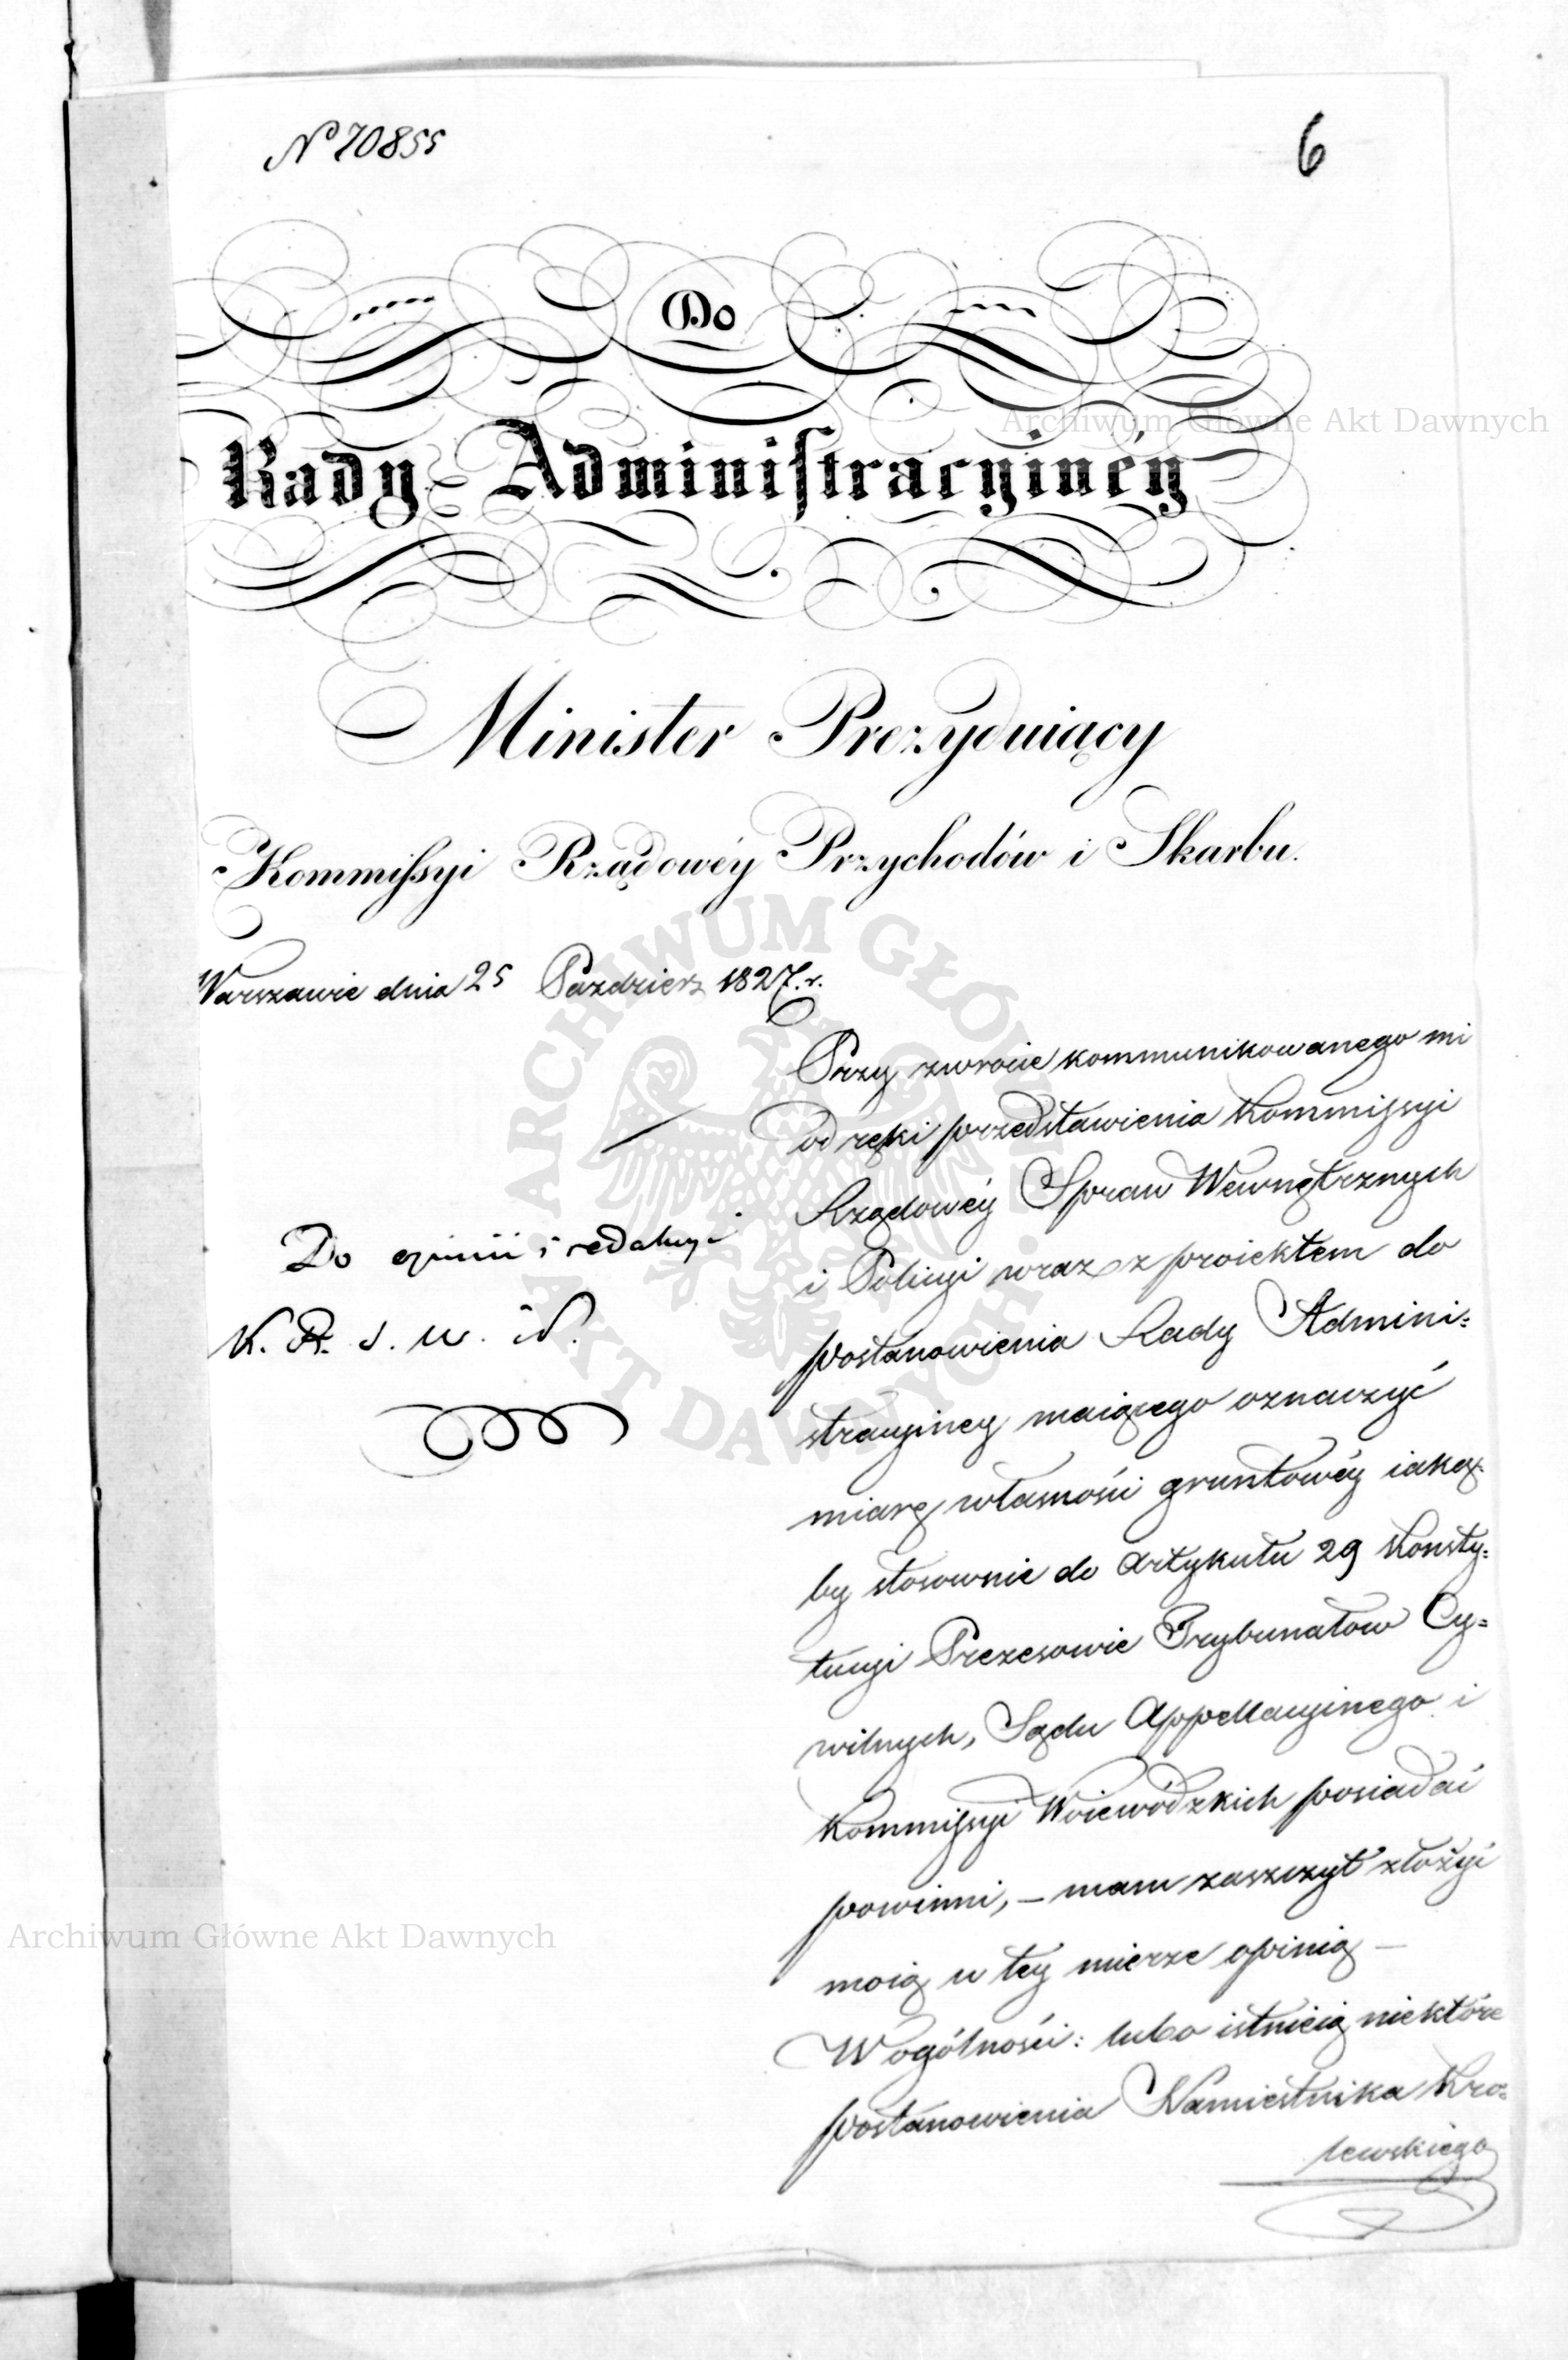 N 70855
6
Do
Rady Adminiſtracyinéy
Minister Prezyduiący
Kommiſsyi Rządowéy Przychodów i Skarbu.
Warszawie dnia 25 Pazdzier 1827. r.
Przy zwrocie kommunikowanego mi
od ręki przedstawienia Kommiſsyi
Rządowéy Spraw Wewnętrznych
i Policyi wraz z proiektem do
postanowienia Rady Admini=
stracyiney maiącego oznaczyć
miarę własności gruntowéy iaką=
by stosownie do Artykułu 29 Konsty=
tucyi Prezesowie Trybunałow Cy=
wilnych, Sądu Appellacyinego i
Kommiſsyi Woiewódzkich posiadać
powinni, – mam zaszczyt złożyć
moią w tey mierze opinią –
W ogólności: lubo istnieią niektóre
postanowienia Namiestnika Kro=
lewskiego
Do opinii i redakcyi
K. R. S. W. i P.
ARCHIWUM GŁÓWNE AKT DAWNYCH
Archiwum Główne Akt Dawnych
Archiwum Główne Akt Dawnych